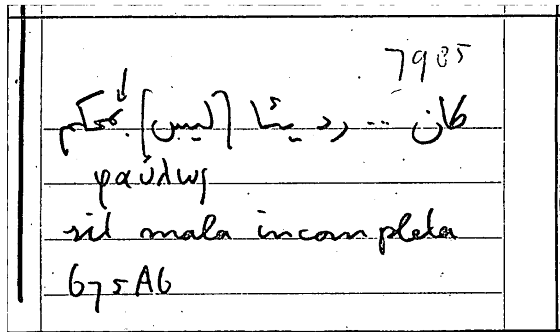 7985
كان .. رديئا [ليس] بمحكم
φαύλως
sit mala incompleta
675A6